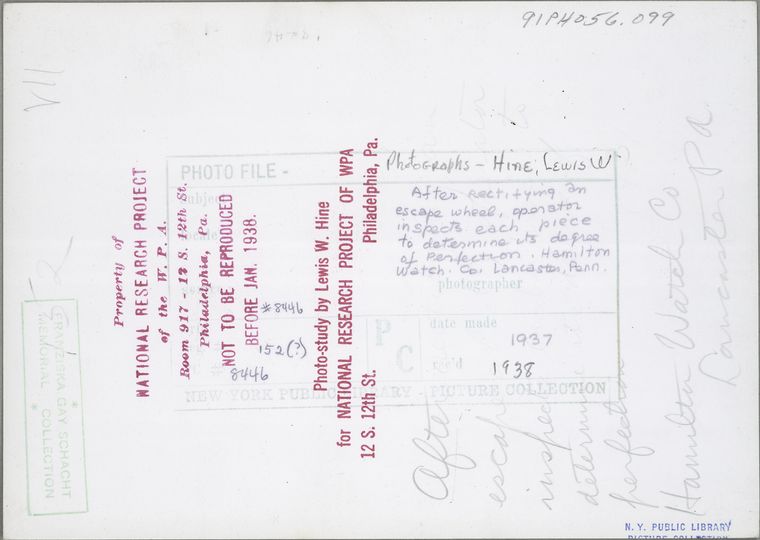 91PH056.099
VII
PHOTO FILE -
Photographs - HINE, LEWIS W
After rectifying an
escape wheel, operator
inspects each piece
to determine its degree
of Perfection. Hamilton
Watch. Co. Lancaster, Penn.
photographer
date made
1937
rec'd
1938
P
C
NEW YORK PUBLIC LIBRARY - PICTURE COLLECTION
Property of
NATIONAL RESEARCH PROJECT
of the W. P. A.
Room 917 - 12 S. 12th St.
Philadelphia, Pa.
NOT TO BE REPRODUCED
BEFORE JAN. 1938.
#8446
152(?)
8446
Photo-study by Lewis W. Hine
for NATIONAL RESEARCH PROJECT OF WPA
12 S. 12th St. Philadelphia, Pa.
After
escape
inspec
determine
perfection
Hamilton Watch Co
Lancaster Pa.
FRANZISKA GAY SCHACHT
MEMORIAL COLLECTION
N. Y. PUBLIC LIBRARY
PICTURE COLLECTION